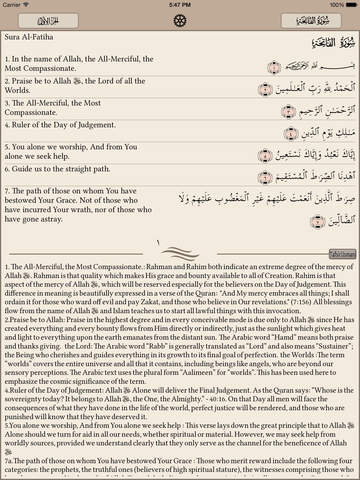 Carrier 5:47 PM 100%
الجزء الأول سورة الفاتحة
Sura Al-Fatiha سورة الفاتحة
1. In the name of Allah, the All-Merciful, the
Most Compassionate.
بسم الله الرحمن الرحيم
2. Praise be to Allah ﷻ, the Lord of all the
Worlds.
ٱلْحَمْدُ لِلَّهِ رَبِّ ٱلْعَٰلَمِينَ
3. The All-Merciful, the Most
Compassionate.
ٱلرَّحْمَٰنِ ٱلرَّحِيمِ
4. Ruler of the Day of Judgement.
مَٰلِكِ يَوْمِ ٱلدِّينِ
5. You alone we worship, And from You
alone we seek help.
إِيَّاكَ نَعْبُدُ وَإِيَّاكَ نَسْتَعِينُ
6. Guide us to the straight path.
ٱهْدِنَا ٱلصِّرَٰطَ ٱلْمُسْتَقِيمَ
7. The path of those on whom You have
bestowed Your Grace. Not of those who
have incurred Your wrath, nor of those who
have gone astray.
صِرَٰطَ ٱلَّذِينَ أَنْعَمْتَ عَلَيْهِمْ غَيْرِ ٱلْمَغْضُوبِ عَلَيْهِمْ وَلَا
ٱلضَّآلِّينَ
١
1. The All-Merciful, the Most Compassionate.: Rahman and Rahim both indicate an extreme degree of the mercy of
Allah ﷻ. Rahman is that quality which makes His grace and bounty available to all of Creation. Rahim is that
aspect of the mercy of Allah ﷻ, which will be reserved especially for the believers on the Day of Judgement. This
difference in meaning is beautifully expressed in a verse of the Quran: "And My mercy embraces all things; I shall
ordain it for those who ward off evil and pay Zakat, and those who believe in Our revelations." (7:156) All blessings
flow from the name of Allah ﷻ and Islam teaches us to start all lawful things with this invocation.
2.Praise be to Allah: Praise in the highest degree and in every conceivable mode is due only to Allah ﷻ since He has
created everything and every bounty flows from Him directly or indirectly, just as the sunlight which gives heat
and light to everything upon the earth emanates from the distant sun. The Arabic word "Hamd" means both praise
and thanks giving. the Lord: The Arabic word "Rabb" is generally translated as "Lord" and also means "Sustainer";
the Being who cherishes and guides everything in its growth to its final goal of perfection. the Worlds :The term
"worlds" covers the entire universe and all that it contains, including beings like angels, who are beyond our
sensory perceptions. The Arabic text uses the plural form "Aalimeen" for "worlds". This has been used here to
emphasize the cosmic significance of the term.
4.Ruler of the Day of Judgement: Allah ﷻ Alone will deliver the Final Judgement. As the Quran says: "Whose is the
sovereignty today? It belongs to Allah ﷻ, the One, the Almighty." - 40:16. On that Day all men will face the
consequences of what they have done in the life of the world, perfect justice will be rendered, and those who are
punished will know that they have deserved it.
5.You alone we worship, And from You alone we seek help : This verse lays down the great principle that to Allah ﷻ
Alone should we turn for aid in all our needs, whether spiritual or material. However, we may seek help from
worldly sources, provided we understand clearly that they only serve as the channel for the benificence of Allah
ﷻ
7a.The path of those on whom You have bestowed Your Grace : Those who merit reward include the following four
categories: the prophets, the truthful ones (believers of high spiritual stature), the witnesses comprising those who